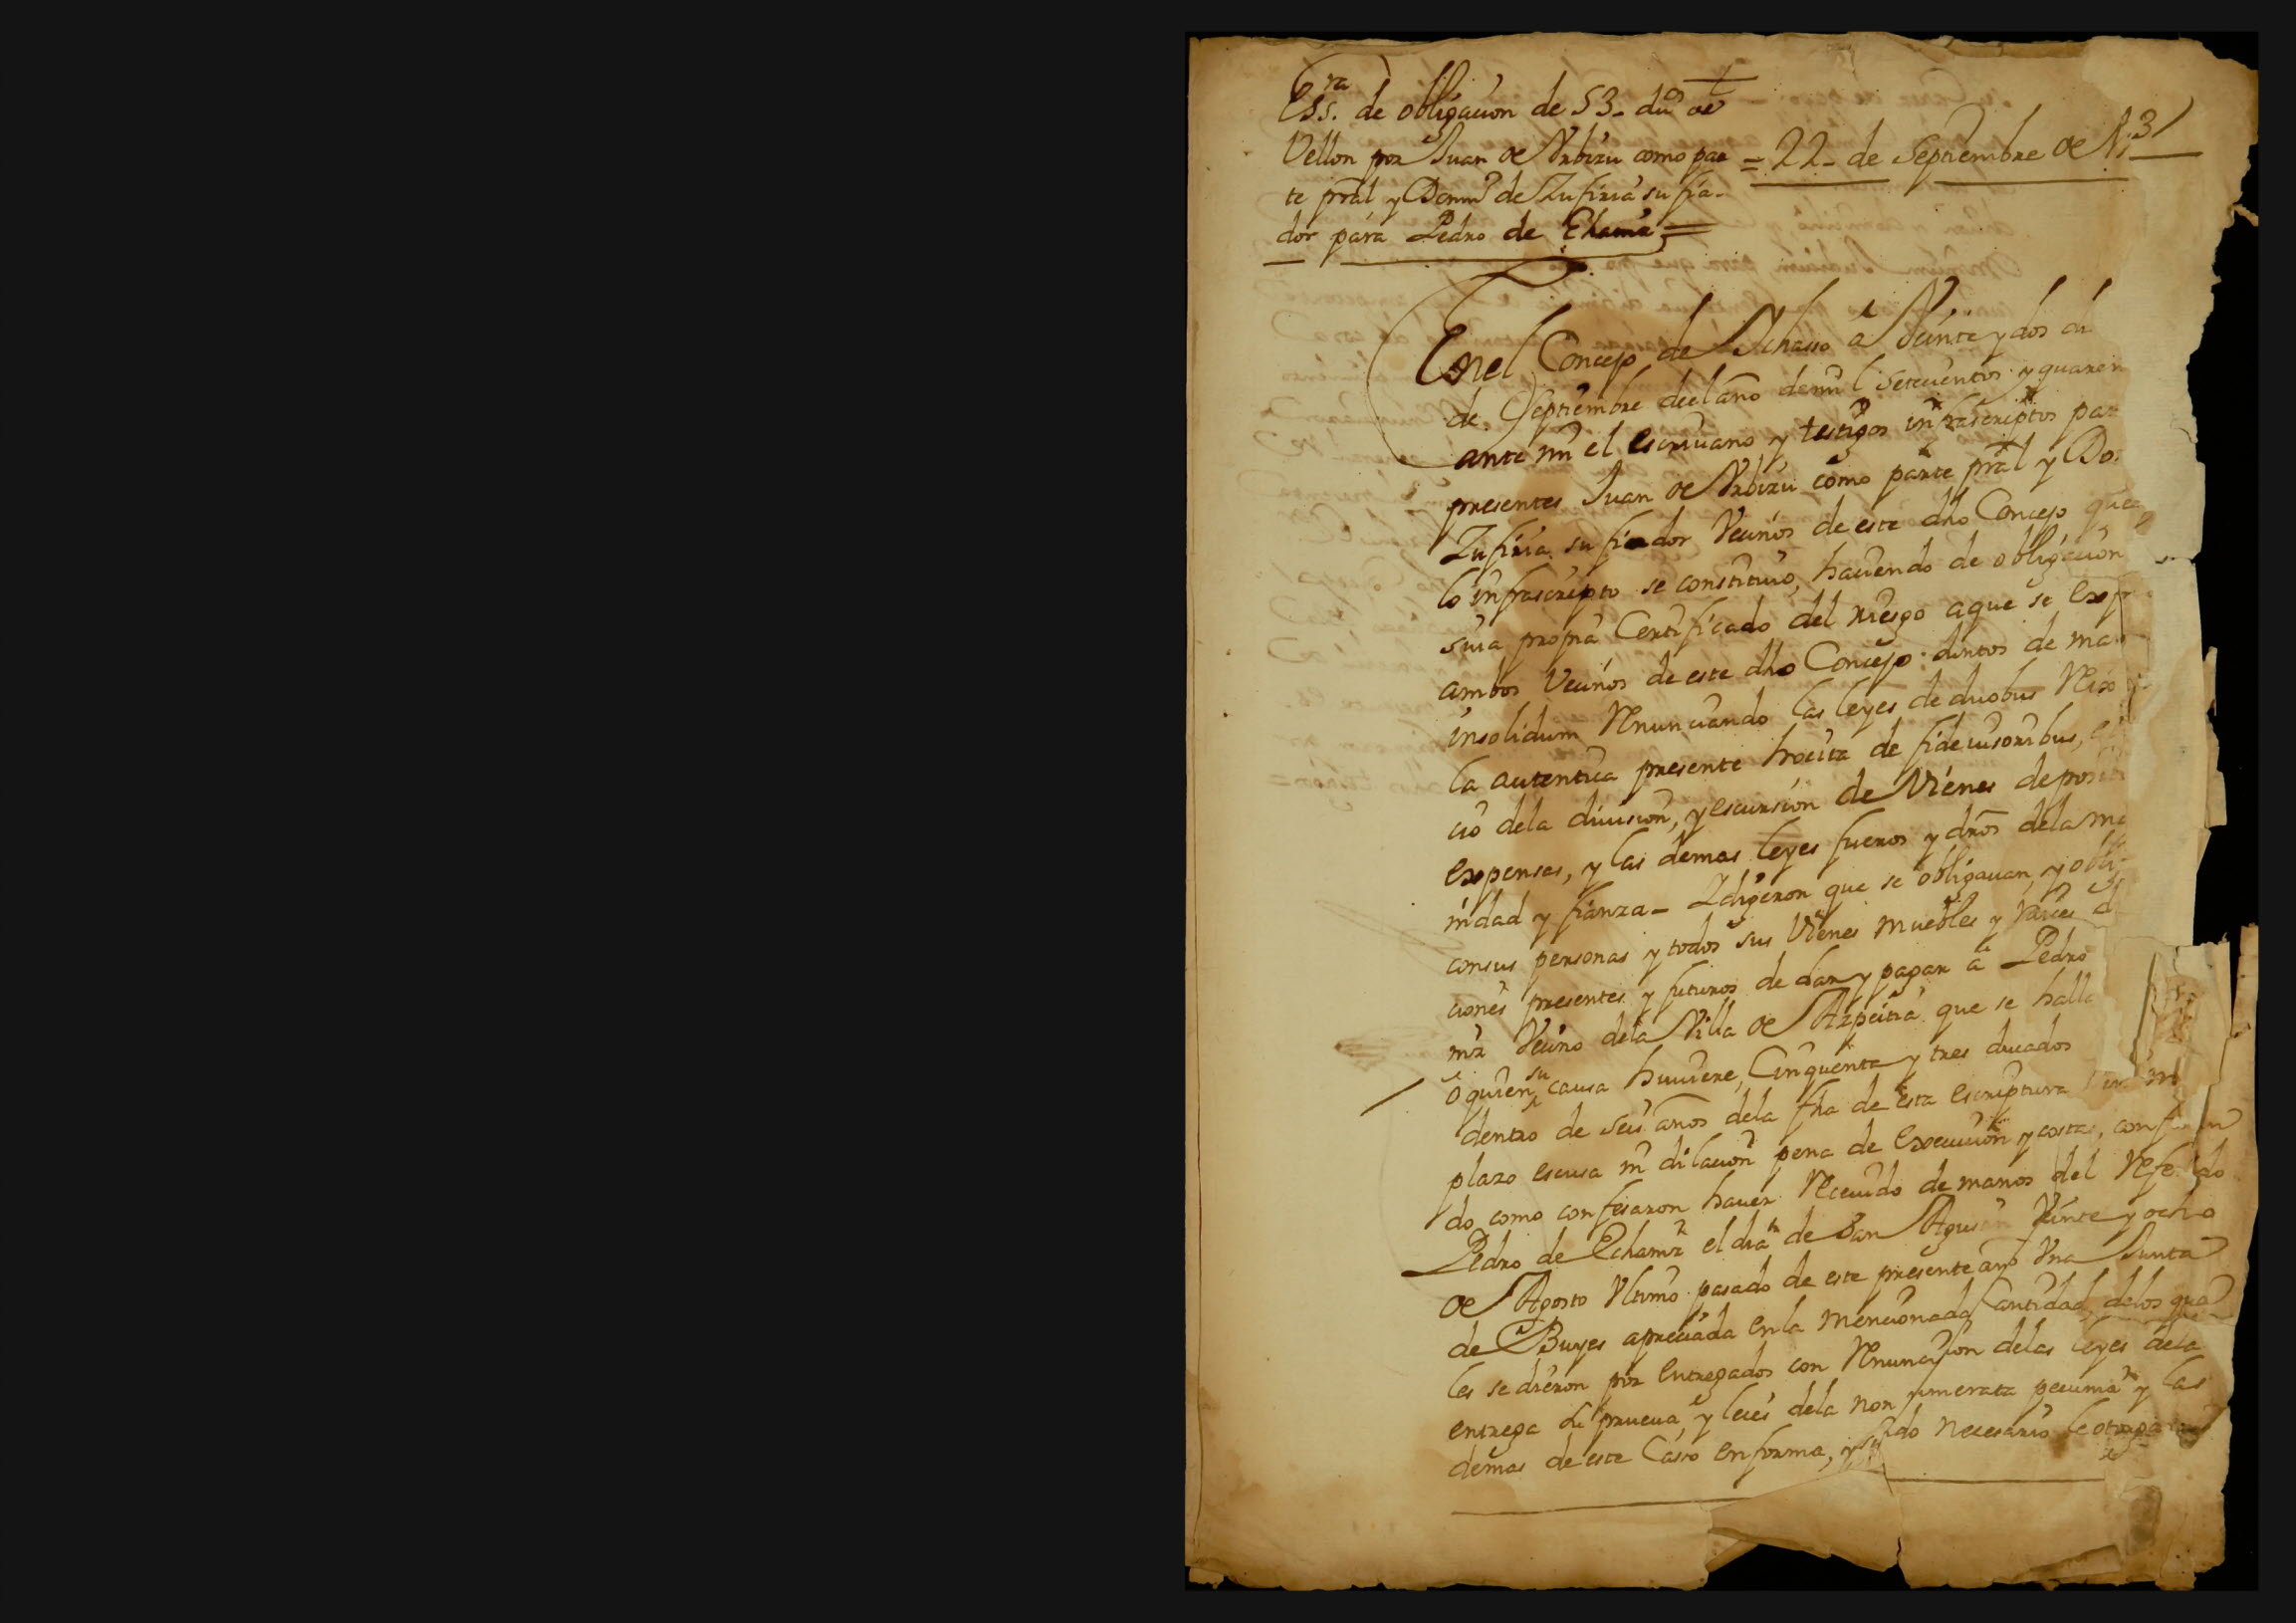 Ess.ra de obligacion de 53. dus de
Vellon por Juan de Vrbizu como par
= 22 - de Septiembre de
te prāl y Domin.o de Zufiria su fia-
dor para Pedro de Echamz =
En el Concejo de Ichasso á Veinte y dos di
de Septiembre del año de mil setecientos y quaren
ante mi el escriuano y testigos infrascriptos par
presentes Juan de Vrbizu como parte prāl y Do
Zufiria su fiador Vecinos de este dho Concejo que
lo infrascripto se constituio, haciendo de obligacion
suia propria Certificado del riesgo a que se Exp
ambos Vecinos de este dho Concejo juntos de ma
insolidum Renunciando las leyes de duobus Rex
la autentica presente hocita de fideiusoribus,
cio dela diuision, y escursion de Vienes deposit
expensas, y las demas leyes fueros y dros dela ma
nidad y fianza - I digeron que se obligauan, y obli
con sus personas y todos sus Vienes muebles y raices
ciones presentes y futuros de dar y pagar á Pedro
mz Vecino dela Villa de Azpeitia que se halla
o quien su causa huuiere, Cinquenta y tres ducados
dentro de seis años dela fha de esta escriptura
plazo escusa ni dilacion pena de Execucion y costas,
do como confesaron hauer Receuido de manos del Referido
Pedro de Echamz el dia de San Agustin Veinte y ocho
de Agosto Vltimo pasado de este presente año Vna Junta
de Buyes apreciada en la mencionada Cantidad, delos qua
les se dieron por entregados con Renunciacion delas leyes dela
entrega su prueua, y leies dela non numerata pecunia y las
demas de este Caso en forma, y siendo necesario le otorgaron